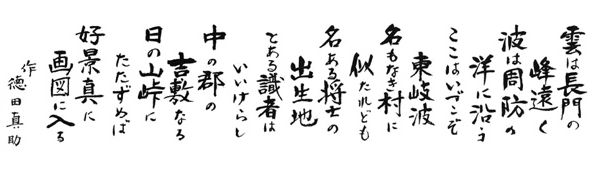 雲は長門の
峰遠く
波は周防の
洋に沿う
ここはいづこぞ
東岐波
名もなき村に
似たれども
名ある将士の
出生地
とある識者は
いいけらし
中の郡の
吉敷なる
日の山峠に
たたずめば
好景真に
画図に入る
作
徳田真助